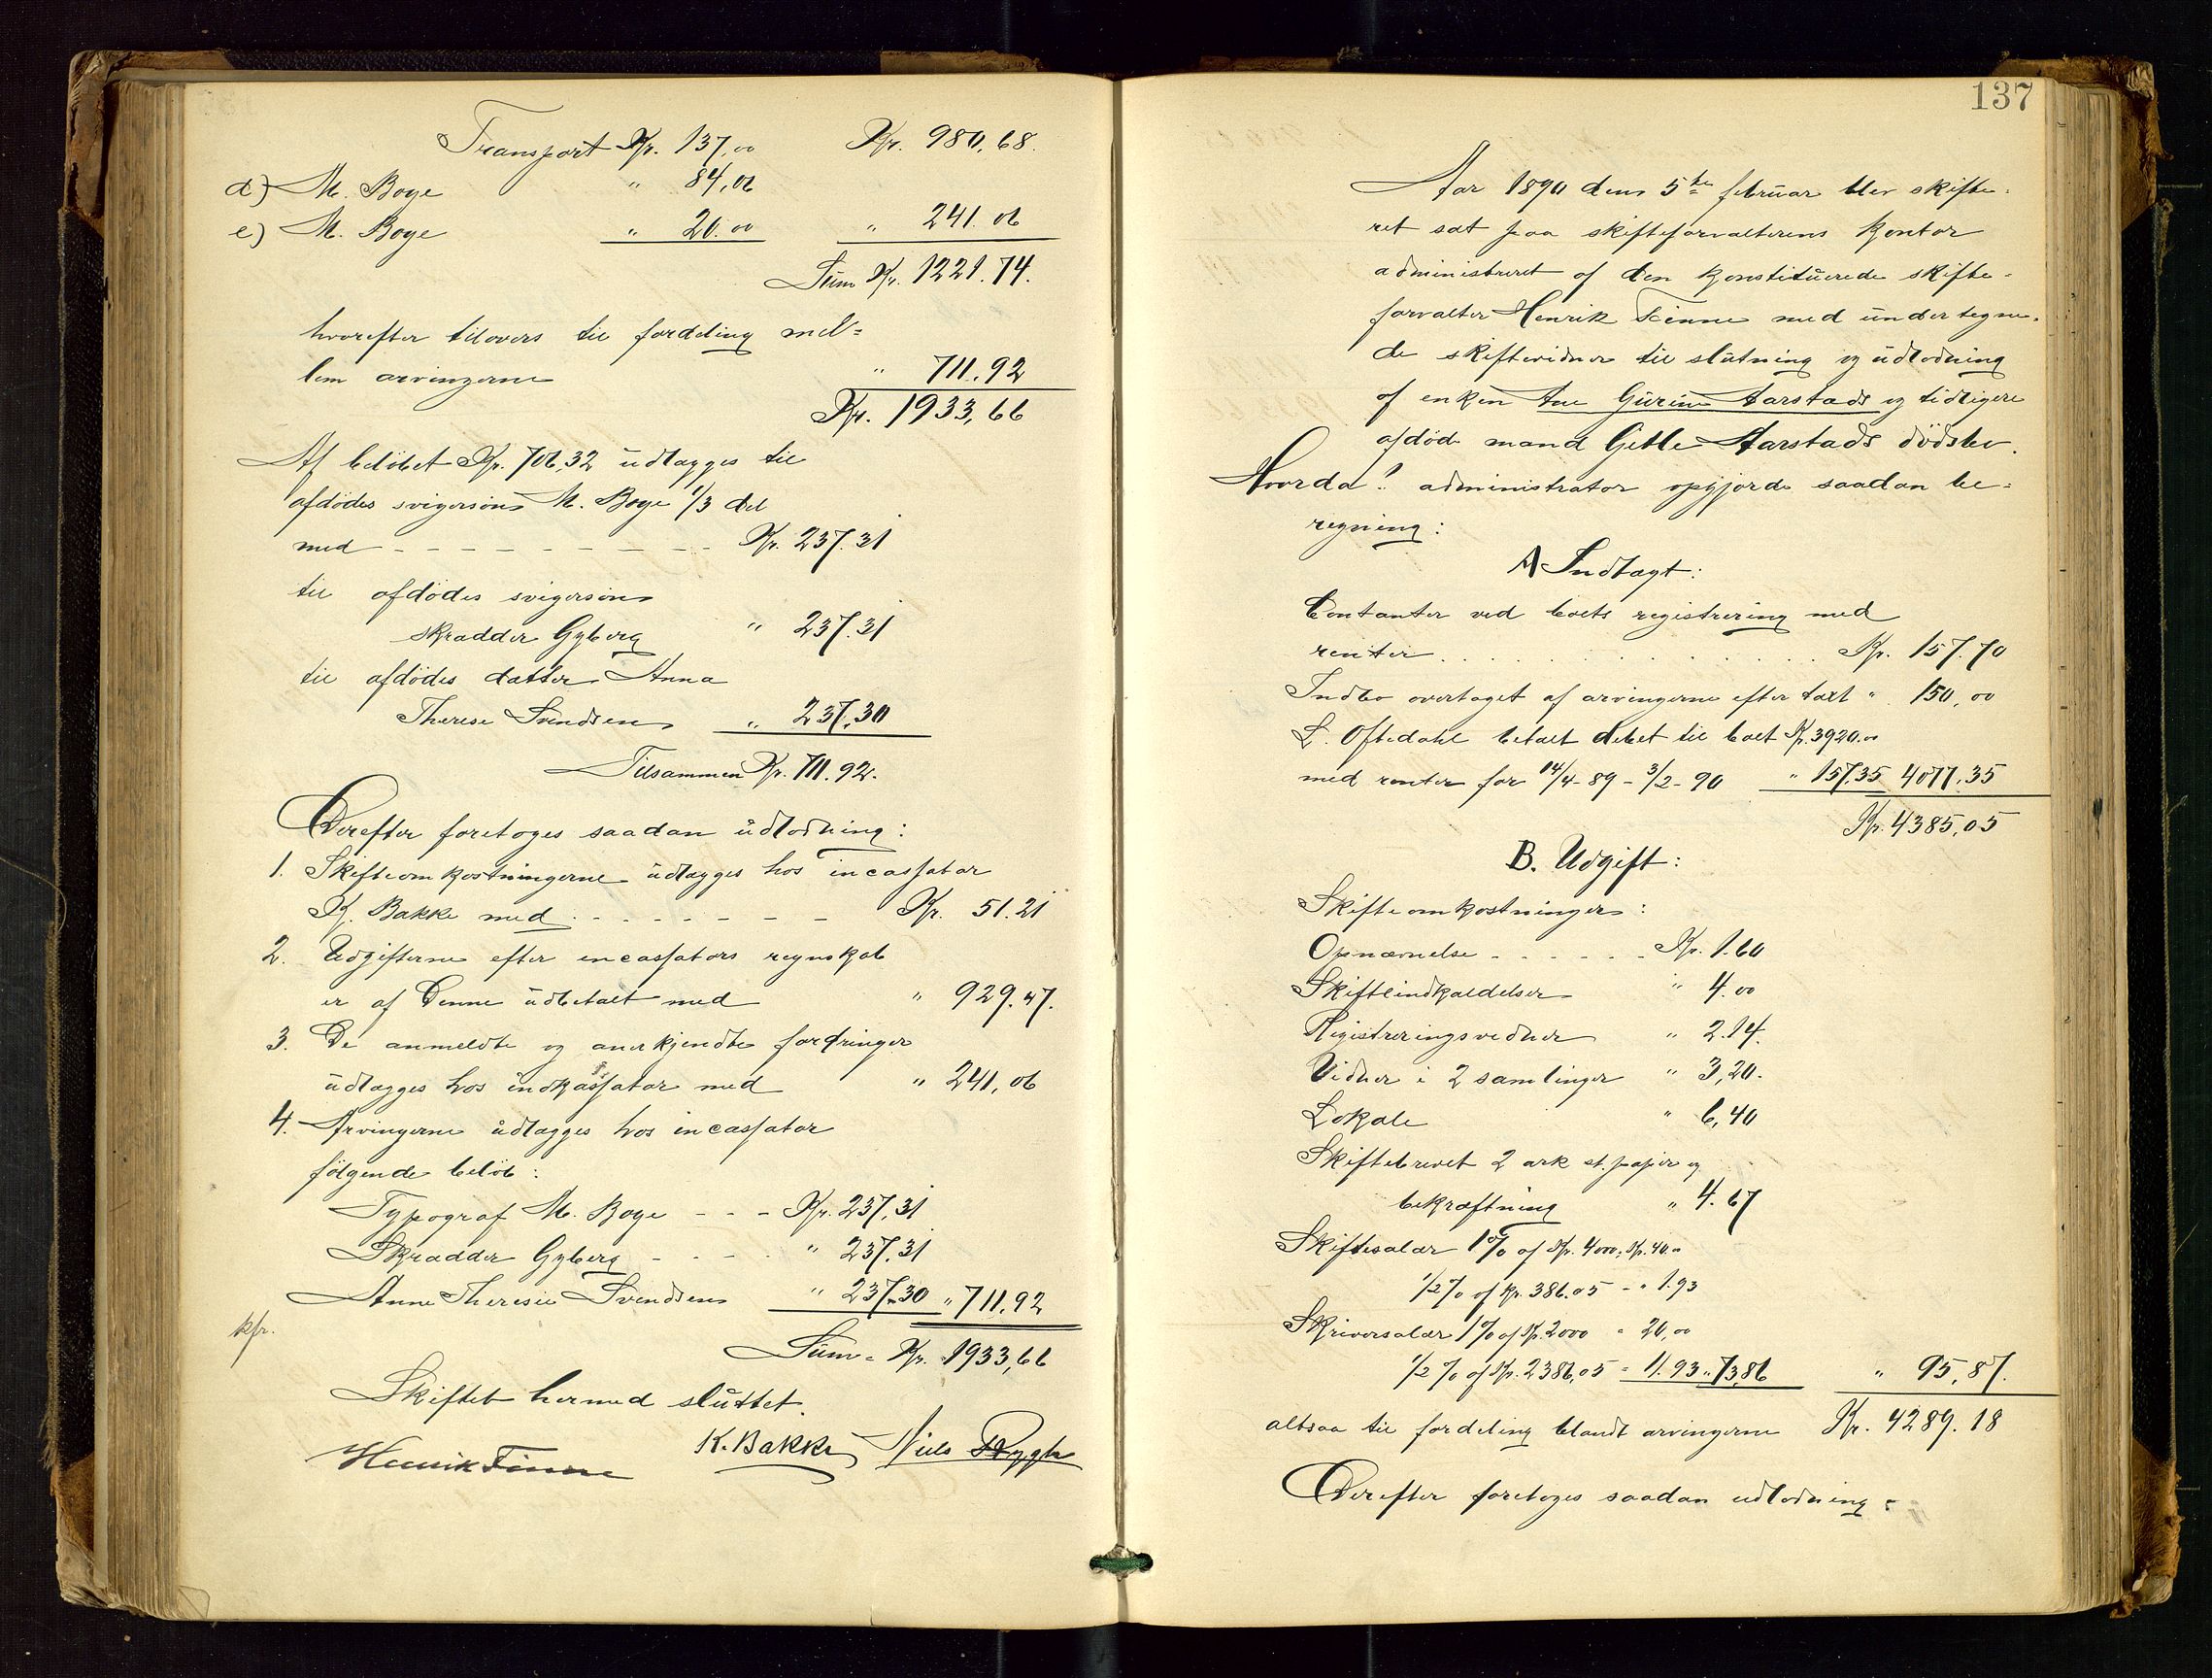 Transport Kr. 137,00 Kr. 980,68.
d) M. Boye " 84,06
e) M. Boye " 20.00 " 241.06
Sum Kr. 1221.74.
hvorefter tilovers til fordeling mel=
lem arvingerne " 711.92
Kr. 1933,66
Af beløbet Kr. 706,32 udlægges til
afdødes svigersøn M. Boye 1/3 del
med - - - - - - - - - Kr. 237.31
til afdødes svigersøn
skrædder Gyberg " 237.31
til afdødes datter Anna
Therese Svendsen " 237.30
Tilsammen Kr. 711.92.
Derefter foretoges saadan udlodning:
1. Skifteomkostningerne udlægges hos incassator
K. Bakke med - - - - - - - Kr. 51.21
2. Udgifterne efter incassators regnskab
er af Denne udbetalt med " 929.47.
3. De anmeldte og anerkjendte fordringer
udlægges hos indkassator med " 241,06
4. Arvingerne udlægges hos incassator
følgende beløb:
Typograf M. Boye - - - Kr. 237,31
Skrædder Gyberg - - - " 237.31
Anne Theresie Svendsen " 237.30 " 711,92
kfr.
Sum Kr. 1933,66
Skiftet hermed sluttet.
Henrik Finne K. Bakke Niels Rygh
137
Aar 1890 den 5te februar blev skifte-
ret sat paa skifteforvalterens kontor
administreret af den konstituerede skifte-
forvalter Henrik Finne med undertegne-
de skiftevidner til slutning og udlodning
af enken Ane Gurine Aarstads og tidligere
afdøde mand Gitle Aarstads dødsbo.
Hvorda! administrator opgjorde saadan be-
regning:
A Indtægt:
Contanter ved boets registrering med
renter . . . . . . . . . . Kr. 157.70
Indbo overtaget af arvingerne efter taxt " 150,00
L. Oftedahl betalt debet til boet Kr. 3920.00
med renter for 14/4-89 - 3/2-90 " 157.35 4077.35
Kr. 4385,05
B. Udgift:
Skifteomkostninger:
Opnævnelse - - - - - - Kr. 1.60
Skifteindkaldelser " 4.00
Registreringsvidner " 2.14.
Vidner i 2 samlinger " 3,20.
Lokale " 6,40
Skiftebrevet 2 ark st. papir og
bekræftning " 4.67
Skiftesalær 1% af Kr. 4000 = Kr. 40.00
1/2 % af Kr. 386.05 - " 1.93
Skriversalær 1% af Kr. 2000 = 20,00
1/2 % af Kr. 2386,05 = 11.93 " 73,86 " 95,87.
altsaa til fordeling blandt arvingerne Kr. 4289.18
Derefter foretoges saadan udlodning: